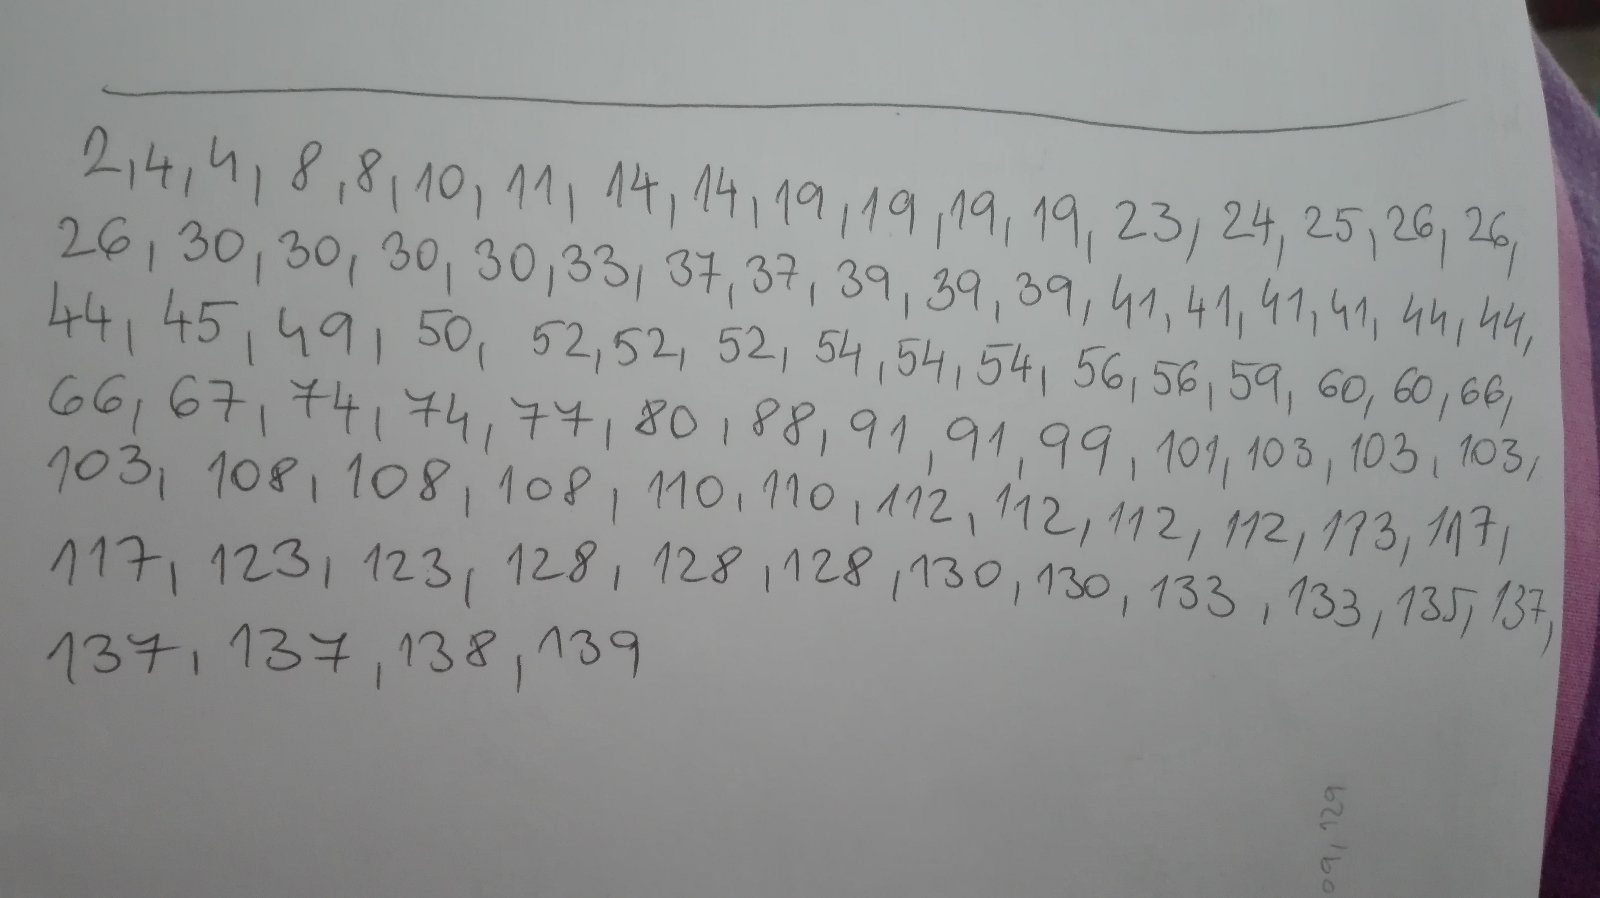 2, 4, 4, 8, 8, 10, 11, 14, 14, 19, 19, 19, 19, 23, 24, 25, 26, 26,
26, 30, 30, 30, 30, 33, 37, 37, 39, 39, 39, 41, 41, 41, 41, 44, 44,
44, 45, 49, 50, 52, 52, 52, 54, 54, 54, 56, 56, 59, 60, 60, 66,
66, 67, 74, 74, 77, 80, 88, 91, 91, 99, 101, 103, 103, 103,
103, 108, 108, 108, 110, 110, 112, 112, 112, 112, 113, 117,
117, 123, 123, 128, 128, 128, 130, 130, 133, 133, 135, 137,
137, 137, 138, 139
09, 129